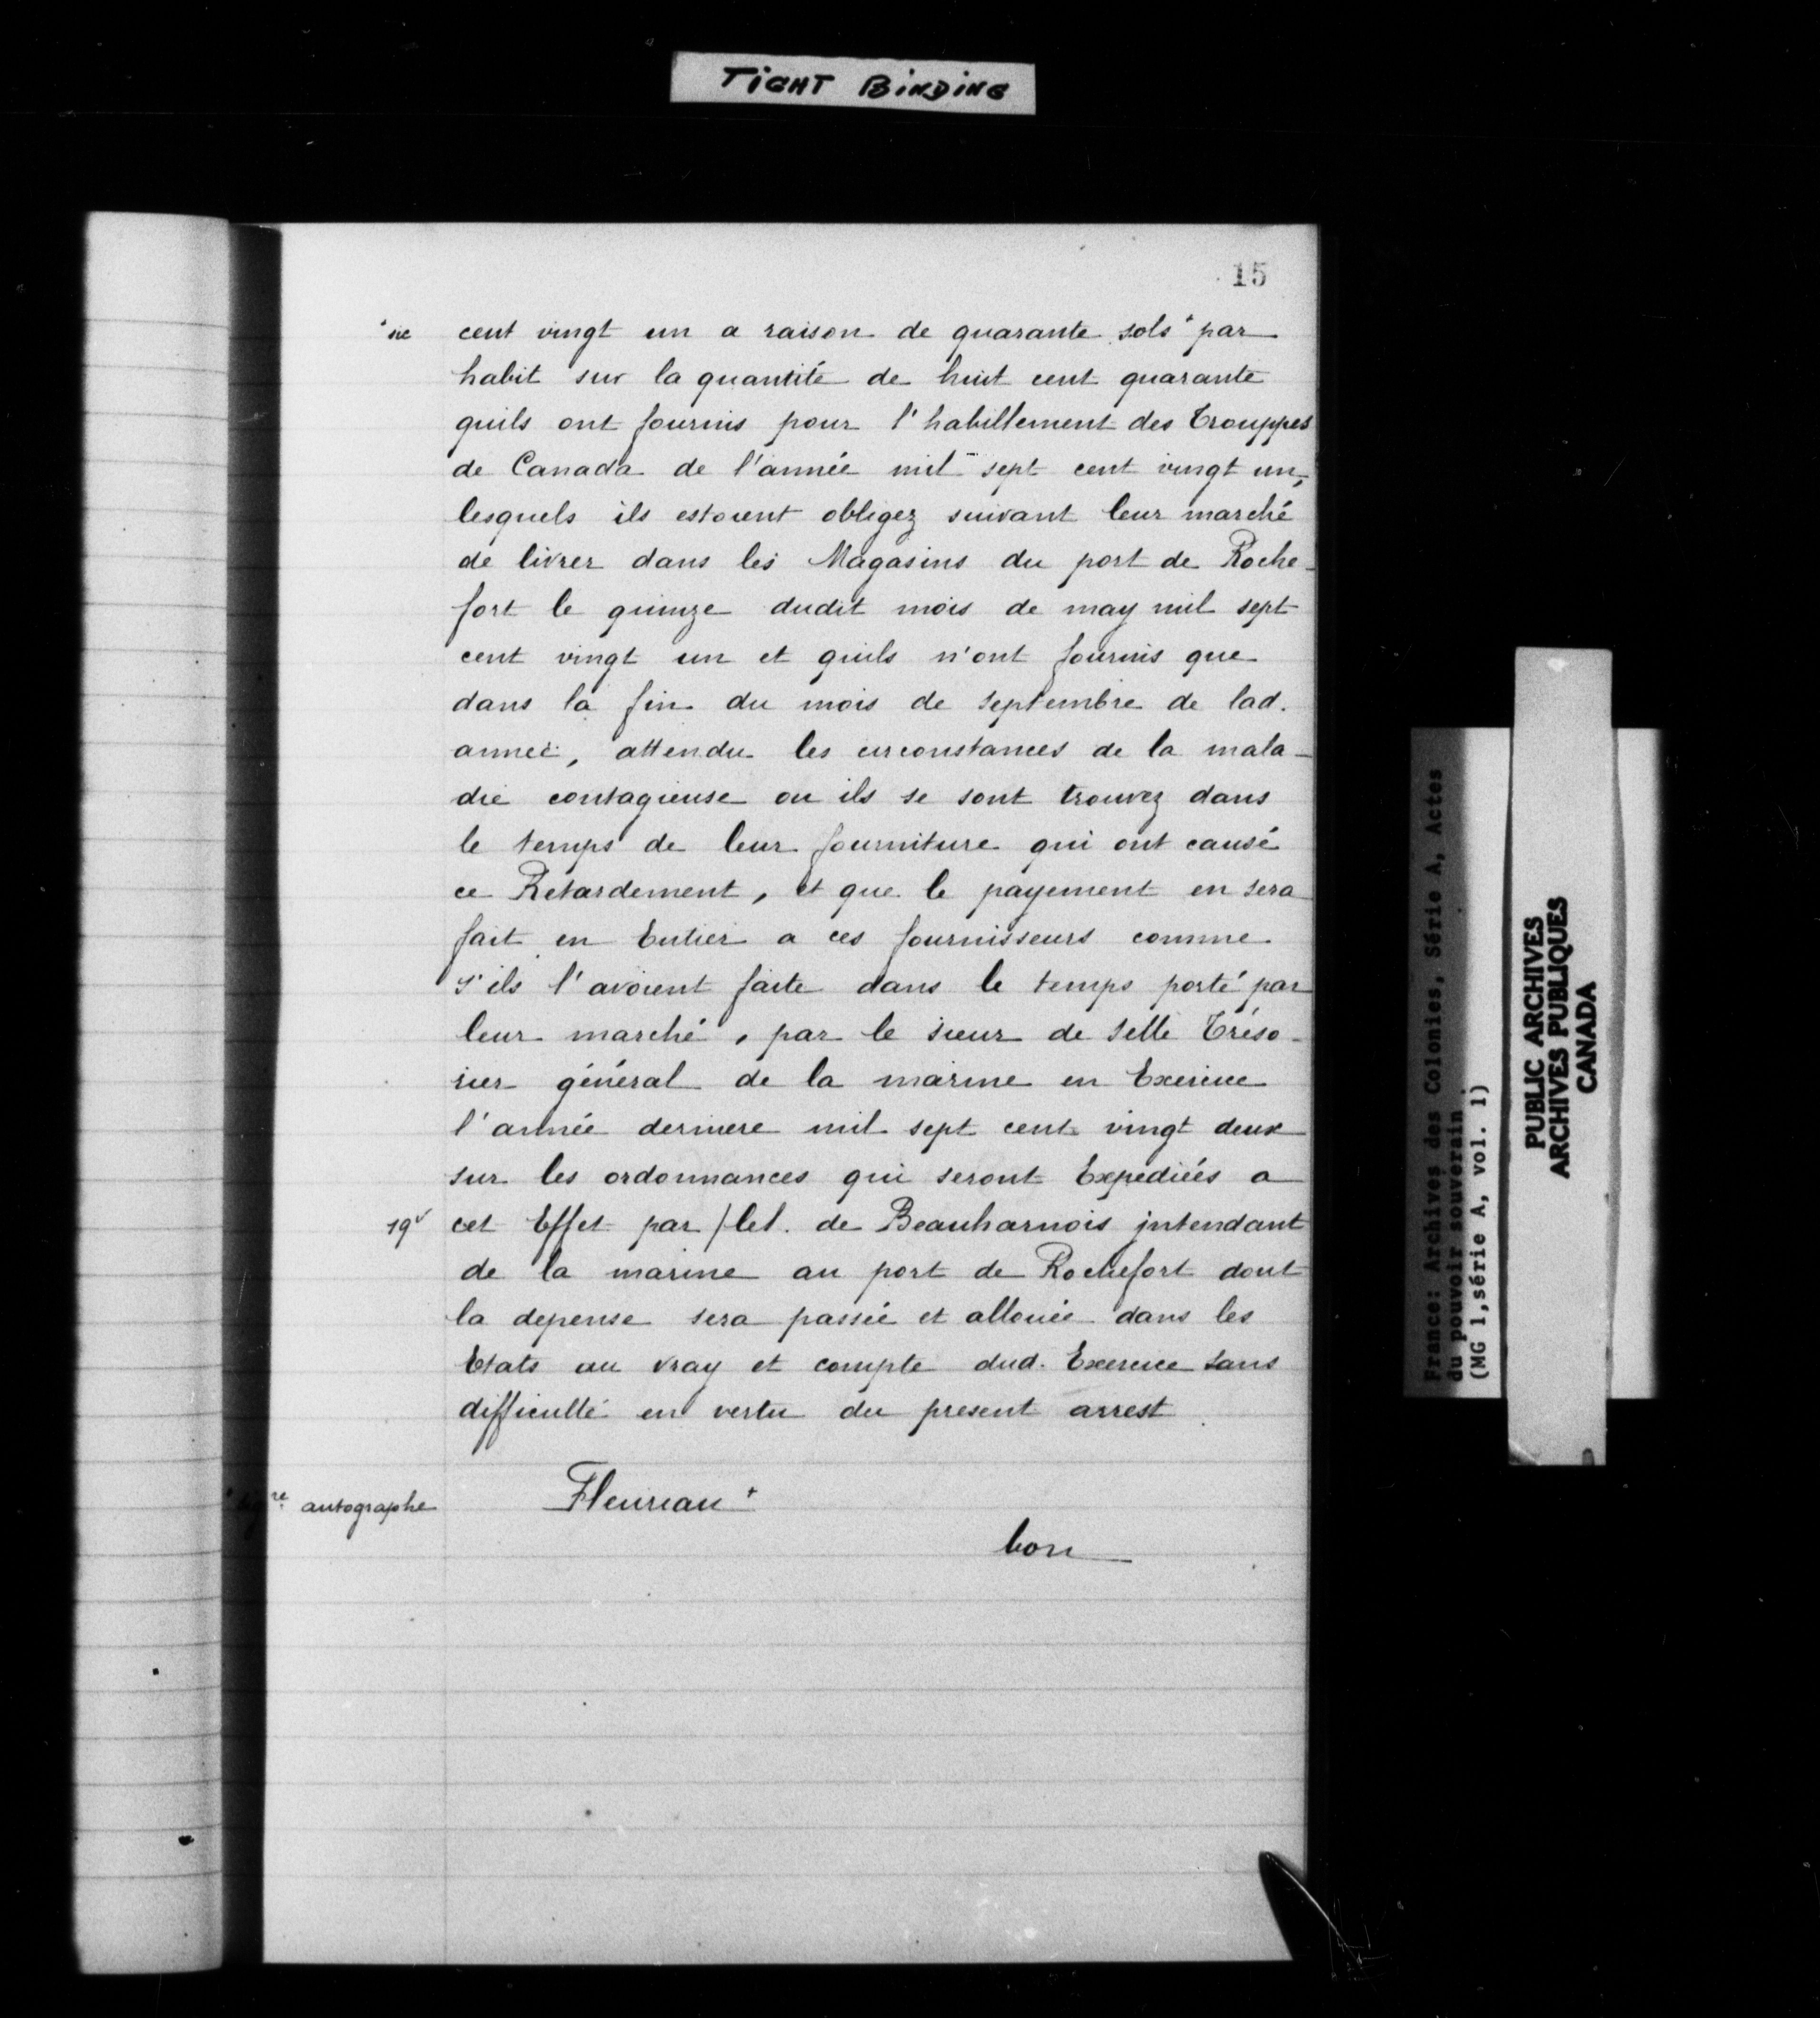 TIGHT BINDING
15
* sic
cent vingt un a raison de quarante sols * par
habit sur la quantité de huit cent quarante
quils ont fournis pour l'habillement des Trouppes
de Canada de l'année mil sept cent vingt un,
lesquels ils estoient obligez suivant leur marché
de livrer dans les Magasins du port de Roche-
fort le quinze dudit mois de may mil sept
cent vingt un et quils n'ont fournis que
dans la fin du mois de septembre de lad.
année, attendu les circonstances de la mala-
die contagieuse ou ils se sont trouvez dans
le temps de leur fourniture qui ont causé
ce Retardement, et que le payement en sera
fait en Entier a ces fournisseurs comme
s'ils l'avoient faite dans le temps porté par
leur marché, par le sieur de Selle Tréso-
rier général de la marine en Exercice
l'année derniere mil sept cent vingt deux
sur les ordonnances qui seront Expediées a
19v
cet Effet par / le s. de Beauharnois jntendant
de la marine au port de Rochefort dont
la depense sera passée et allouée dans les
Etats au vray et compte dud. Exercice sans
difficulté en vertu du present arrest
re autographe
Fleuriau +
bon
France: Archives des Colonies, Série A, Actes
du pouvoir souverain
(MG 1,série A, vol. 1)
PUBLIC ARCHIVES
ARCHIVES PUBLIQUES
CANADA